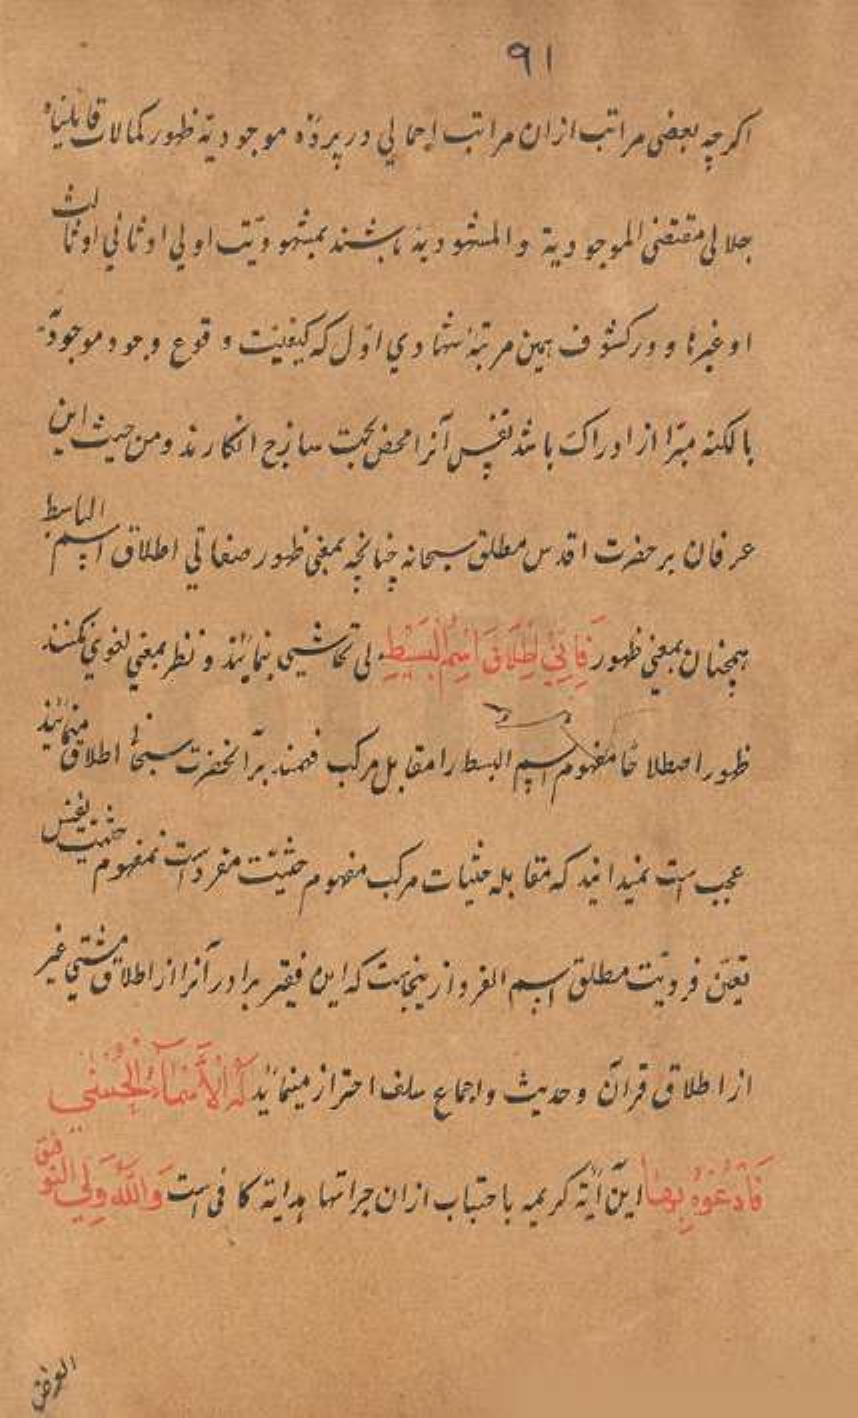 ۹۱
اکرچه بعضی مراتب ازان مراتب اجمالی در پردۀ موجودیة ظهور کمالات قابلیات
جلالی مقتضی الموجودیة والمشهودیة باشند بمشهودیت اولی او ثانی او ثالث
او غیرها و در کشوف همین مرتبۀ شهادی اول که کیفیت وقوع وجود موجودیة
بالکنه مبرا از ادراک باشد نفس آنرا محض بحت سازج انکارند ومن حیث این
عرفان بر حضرت اقدس مطلق سبحانه چنانچه بمعنی ظهور صفاتی اطلاق اسم الباسط
همچنان بمعنی ظهور فَاِنِّي اِطْلَاقَ اسْمُ الْبَسِيْطِ لی تحاشیی بنمایند و نظر بمعنی لغوی نکنند
ظهور اصطلاحا مفهوم اسم البسط را مقابل مرکب فهمند بر آنحضرت سبحانه اطلاق مینمایند
عجب است نمیدانید که مقابله حثیات مرکب مفهوم حثیت مفرد است نمفهوم حثیت نفس
تعین فردیت مطلق اسم الفرد ازینجاست که این فقیر برادر آنرا از اطلاق مشتی غیر
از اطلاق قرآن و حدیث واجماع سلف احتراز مینماید لَهُ الْاَسْمَآءُ الْحُسْنٰی
فَادْعُوْهُ بِهَا این آیۀ کریمه باجتناب ازان جراتها هدایة کافی است وَاللّٰهُ وَلِيُّ التَّوْفِيْق